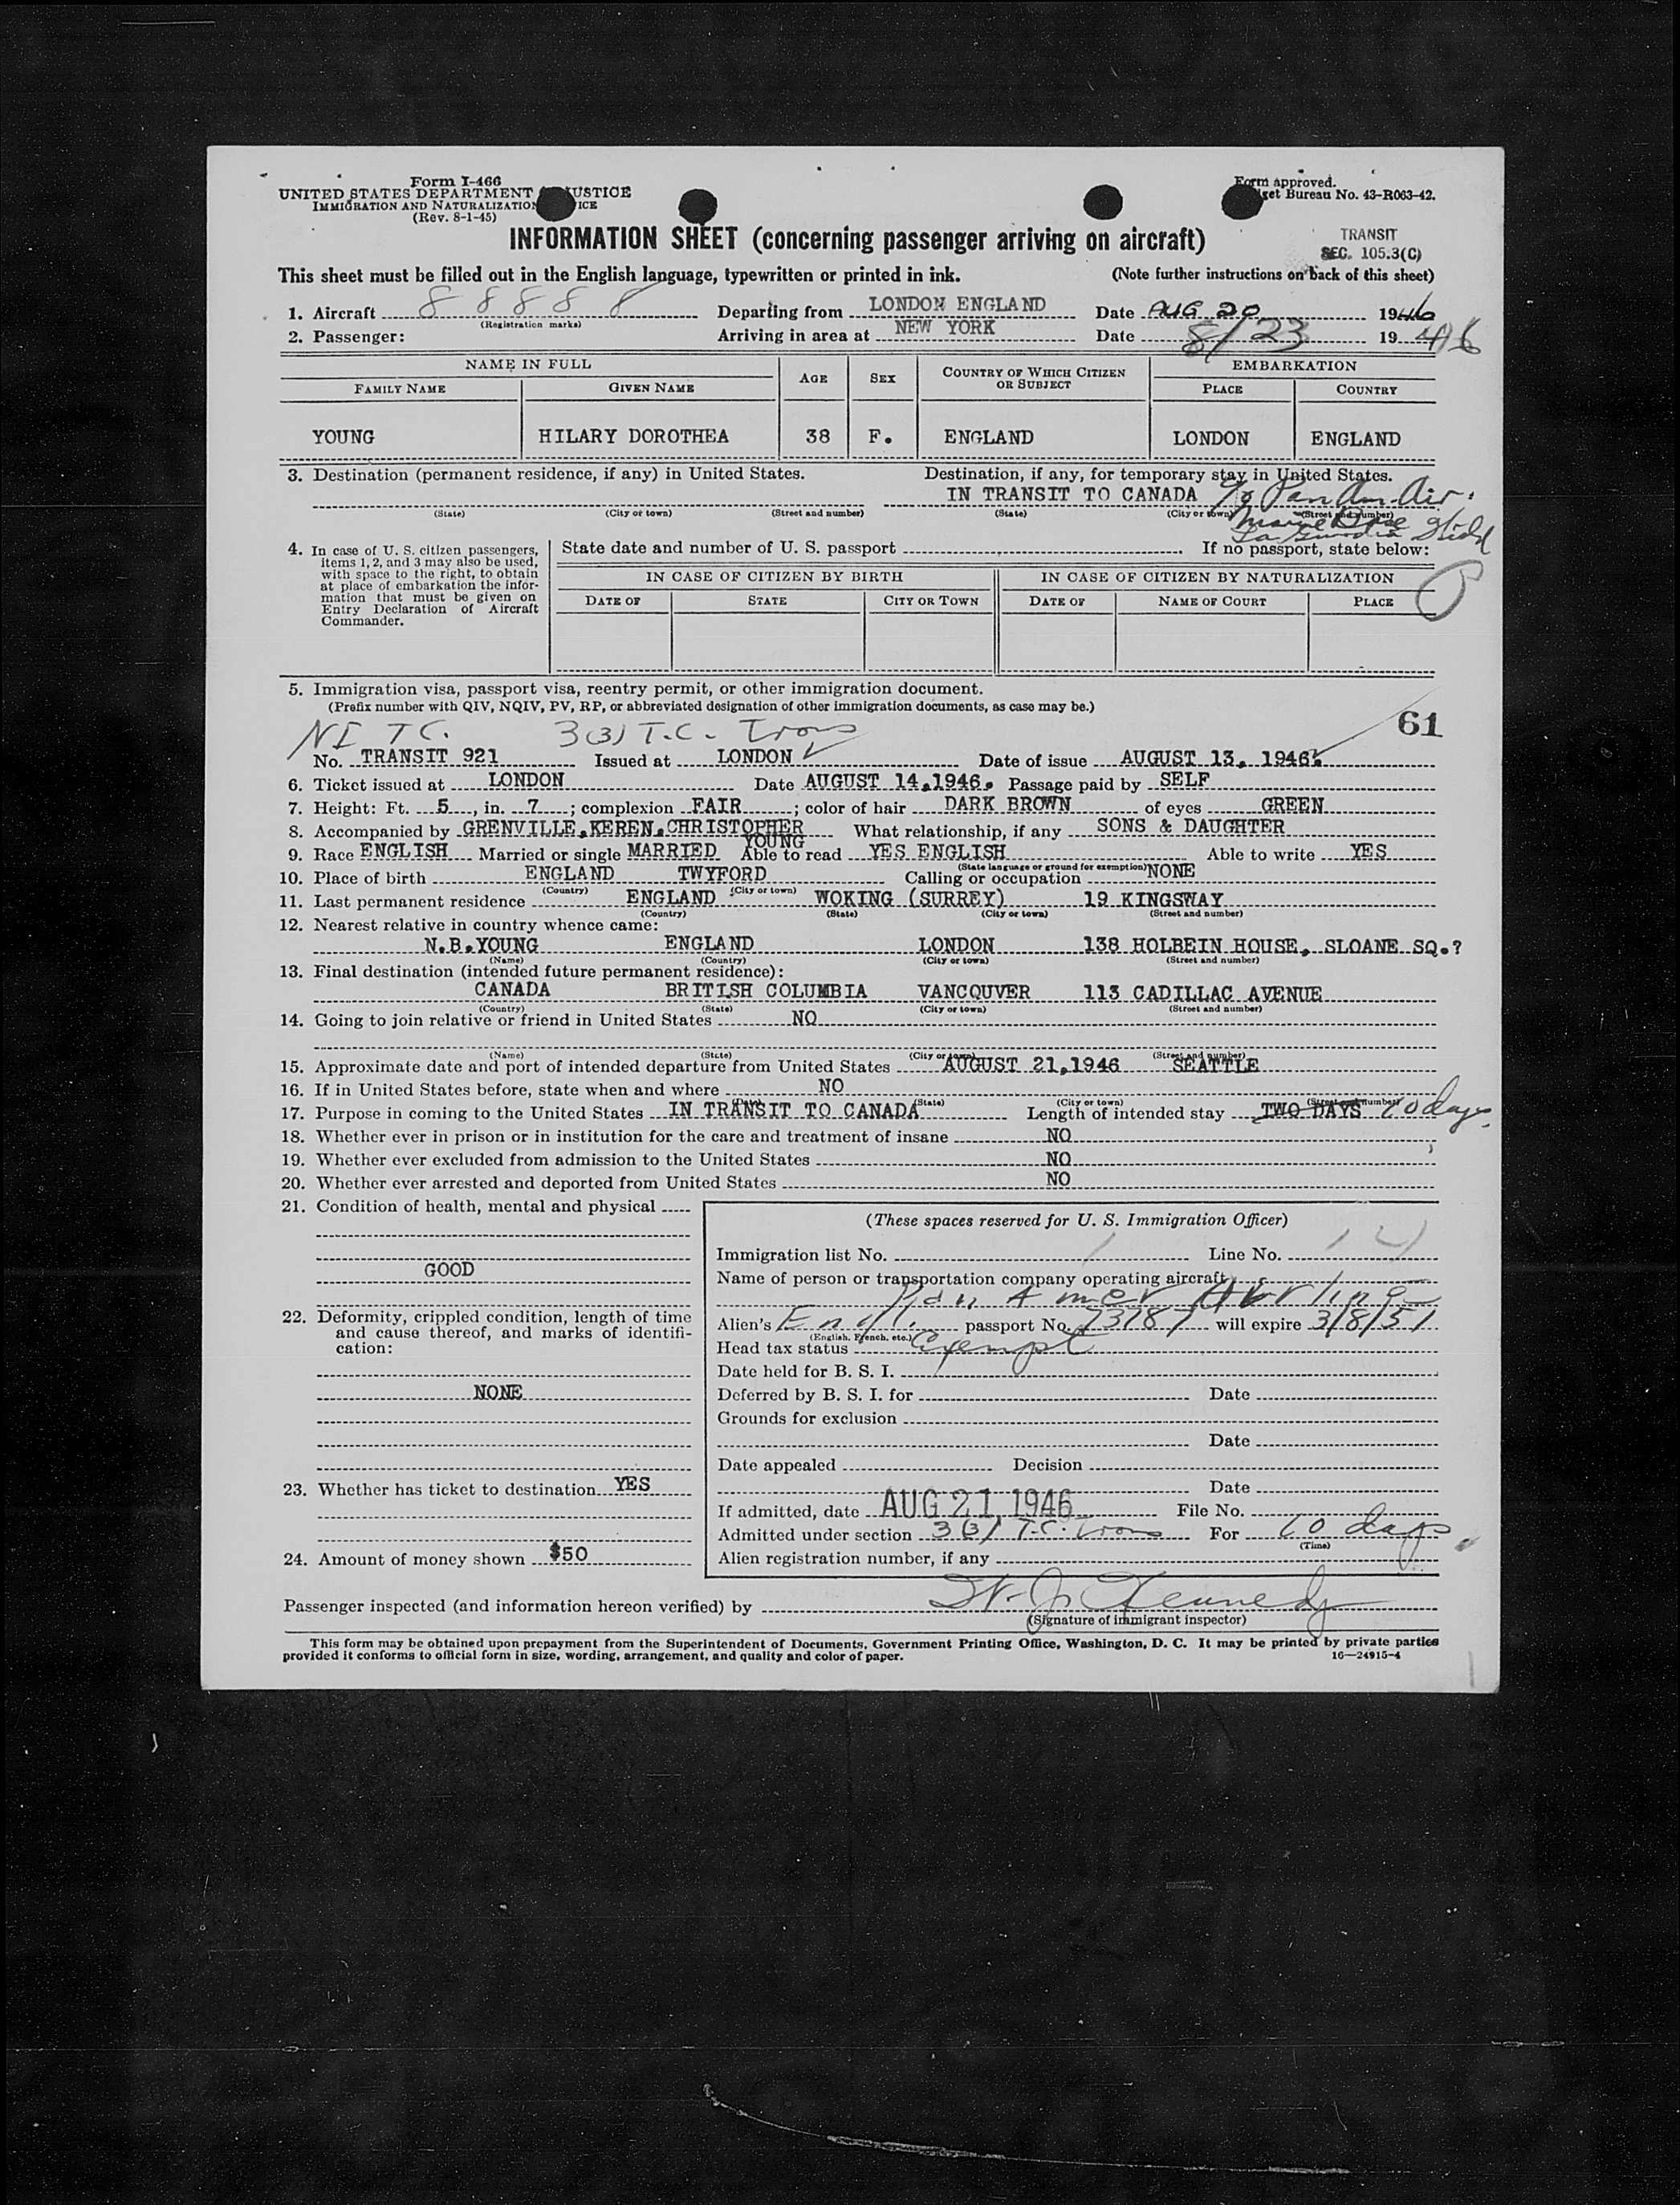 Form I-466
UNITED STATES DEPARTMENT JUSTICE
IMMIGRATION AND NATURALIZATION ICE
(Rev. 8-1-45)
Form approved.
get Bureau No. 43-R063-42.
INFORMATION SHEET (concerning passenger arriving on aircraft)
TRANSIT
SEC. 105.3(C)
This sheet must be filled out in the English language, typewritten or printed in ink. (Note further instructions on back of this sheet)
1. Aircraft 88888 Departing from LONDON ENGLAND Date AUG 20 1946
(Registration marks)
2. Passenger: Arriving in area at NEW YORK Date 8/23 1946
NAME IN FULL AGE SEX COUNTRY OF WHICH CITIZEN OR SUBJECT EMBARKATION
FAMILY NAME GIVEN NAME PLACE COUNTRY
YOUNG HILARY DOROTHEA 38 F. ENGLAND LONDON ENGLAND
3. Destination (permanent residence, if any) in United States. Destination, if any, for temporary stay in United States.
IN TRANSIT TO CANADA c/o Pan Am. Air.
(State) (City or town) (Street and number) (State) (City or town) (Street and number)
Marine Base
La Guardia
4. In case of U. S. citizen passengers, items 1, 2, and 3 may also be used, with space to the right, to obtain at place of embarkation the information that must be given on Entry Declaration of Aircraft Commander.
State date and number of U. S. passport If no passport, state below:
IN CASE OF CITIZEN BY BIRTH IN CASE OF CITIZEN BY NATURALIZATION
DATE OF STATE CITY OR TOWN DATE OF NAME OF COURT PLACE
5. Immigration visa, passport visa, reentry permit, or other immigration document.
(Prefix number with QIV, NQIV, PV, RP, or abbreviated designation of other immigration documents, as case may be.)
61
NI TC. 3(3) T.C. Trans
No. TRANSIT 921 Issued at LONDON Date of issue AUGUST 13, 1946.
6. Ticket issued at LONDON Date AUGUST 14,1946. Passage paid by SELF
7. Height: Ft. 5, in. 7; complexion FAIR; color of hair DARK BROWN of eyes GREEN
8. Accompanied by GRENVILLE,KEREN,CHRISTOPHER What relationship, if any SONS & DAUGHTER
YOUNG
9. Race ENGLISH Married or single MARRIED Able to read YES ENGLISH Able to write YES
(State language or ground for exemption)
10. Place of birth ENGLAND TWYFORD Calling or occupation NONE
(Country) (City or town)
11. Last permanent residence ENGLAND WOKING (SURREY) 19 KINGSWAY
(Country) (State) (City or town) (Street and number)
12. Nearest relative in country whence came:
N.B.YOUNG ENGLAND LONDON 138 HOLBEIN HOUSE, SLOANE SQ.?
(Name) (Country) (City or town) (Street and number)
13. Final destination (intended future permanent residence):
CANADA BRITISH COLUMBIA VANCOUVER 113 CADILLAC AVENUE
(Country) (State) (City or town) (Street and number)
14. Going to join relative or friend in United States NO
(Name) (State) (City or town) (Street and number)
15. Approximate date and port of intended departure from United States AUGUST 21,1946 SEATTLE
16. If in United States before, state when and where NO
(Date) (State) (City or town) (Street and number)
17. Purpose in coming to the United States IN TRANSIT TO CANADA Length of intended stay TWO DAYS 10 days.
18. Whether ever in prison or in institution for the care and treatment of insane NO
19. Whether ever excluded from admission to the United States NO
20. Whether ever arrested and deported from United States NO
21. Condition of health, mental and physical
GOOD
22. Deformity, crippled condition, length of time and cause thereof, and marks of identification:
NONE
23. Whether has ticket to destination YES
24. Amount of money shown $50
(These spaces reserved for U. S. Immigration Officer)
Immigration list No. 1 Line No.
Name of person or transportation company operating aircraft
Pan Amer Airlines
Alien's Engl. passport No. 73787 will expire 3/8/51
(English, French, etc.)
Head tax status Exempt
Date held for B. S. I.
Deferred by B. S. I. for Date
Grounds for exclusion
Date
Date appealed Decision
Date
If admitted, date AUG 21 1946 File No.
Admitted under section 3(3) T.C. Trans For 10 days
(Time)
Alien registration number, if any
Passenger inspected (and information hereon verified) by W. J. Kennedy
(Signature of immigrant inspector)
This form may be obtained upon prepayment from the Superintendent of Documents, Government Printing Office, Washington, D. C. It may be printed by private parties
provided it conforms to official form in size, wording, arrangement, and quality and color of paper. 16—24915-4